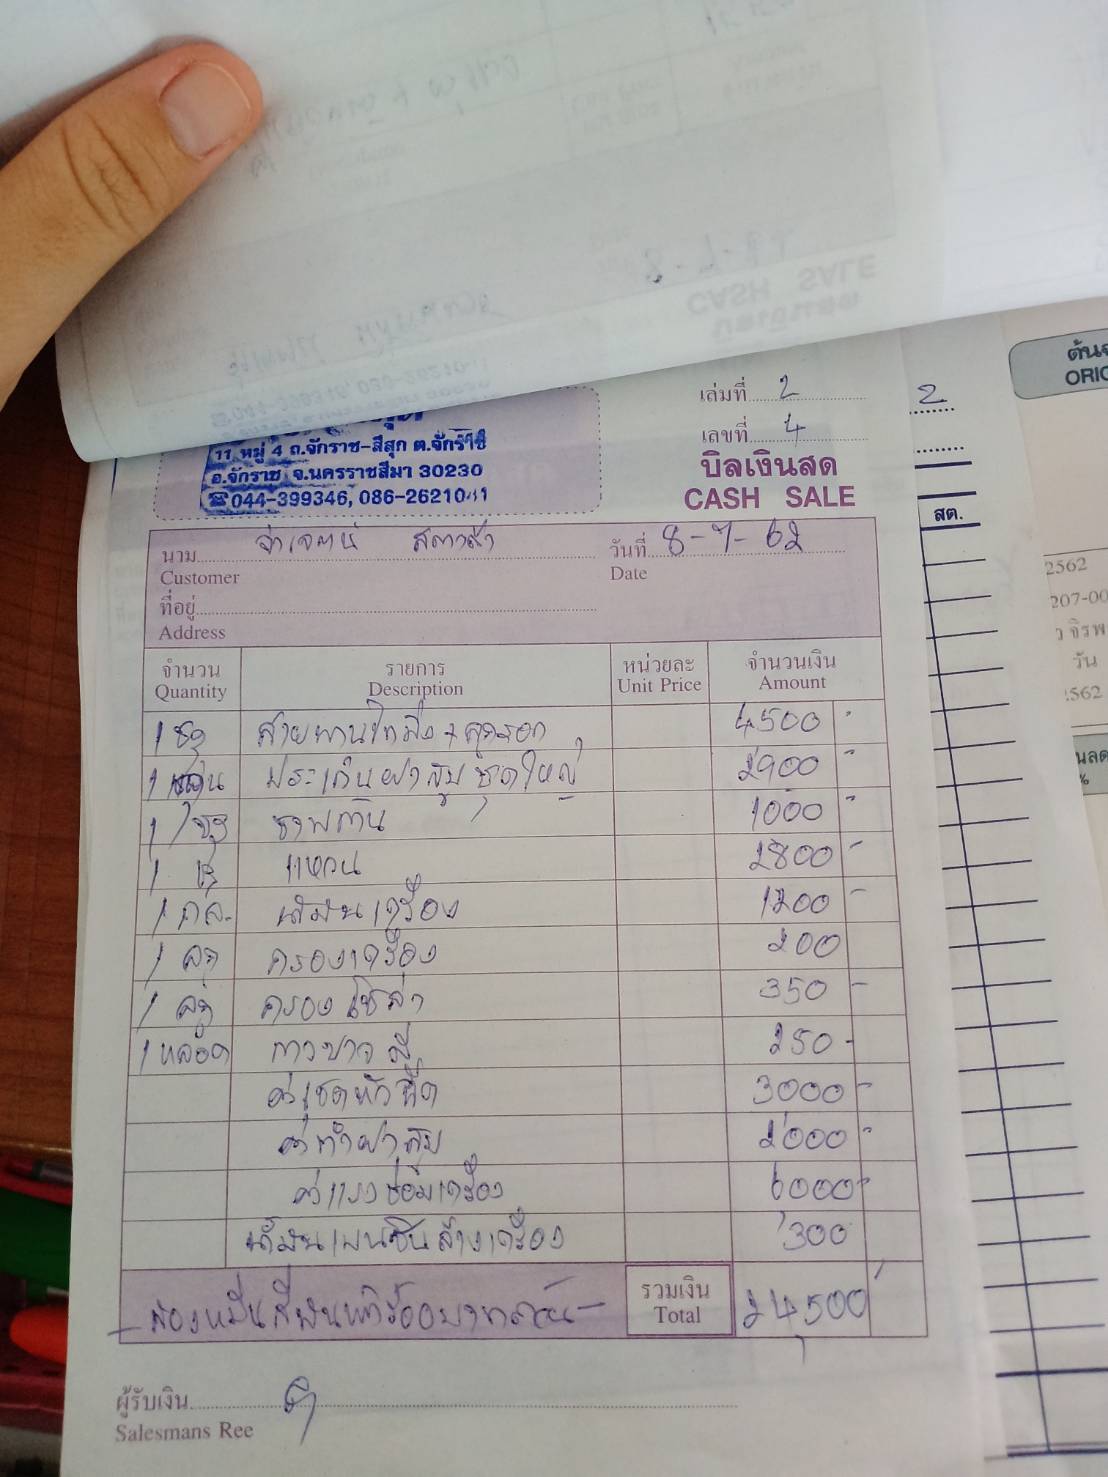 เล่มที่ 2
2
เลขที่ 4
11 หมู่ 4 ถ.จักราช-สีสุก ต.จักราช
อ.จักราช จ.นครราชสีมา 30230
☎044-399346, 086-2621041
บิลเงินสด
CASH SALE
ต้นฉ
ORIG
สต.
นาม
วันที่ 8-7-62
Customer
Date
ที่อยู่
Address
จำนวน รายการ หน่วยละ จำนวนเงิน
Quantity Description Unit Price Amount
1 ชุด สายพานไทมิ่ง + ลูกรอก 4500 -
ประเก็นฝาสูบ ชุดใหญ่ 2900 -
1 ชุด ชาฟก้าน 1000 -
1 ชุด แหวน 2800 -
1 กล. น้ำมันเครื่อง 1200 -
1 ลูก กรองเครื่อง 200
1 ลูก กรองโซล่า 350 -
1 หลอด กาวยาง 250 -
3000 -
ค่าทำฝาสูบ 2000 -
ค่าแรงซ่อมเครื่อง 6000 -
น้ำมันเบนซินล้างเครื่อง 300
- สองหมื่นสี่พันห้าร้อยบาทถ้วน -
รวมเงิน
Total
24,500
ผู้รับเงิน
Salesmans Ree
2562
207-00
ว จิรพ
วัน
2562
นลด
%